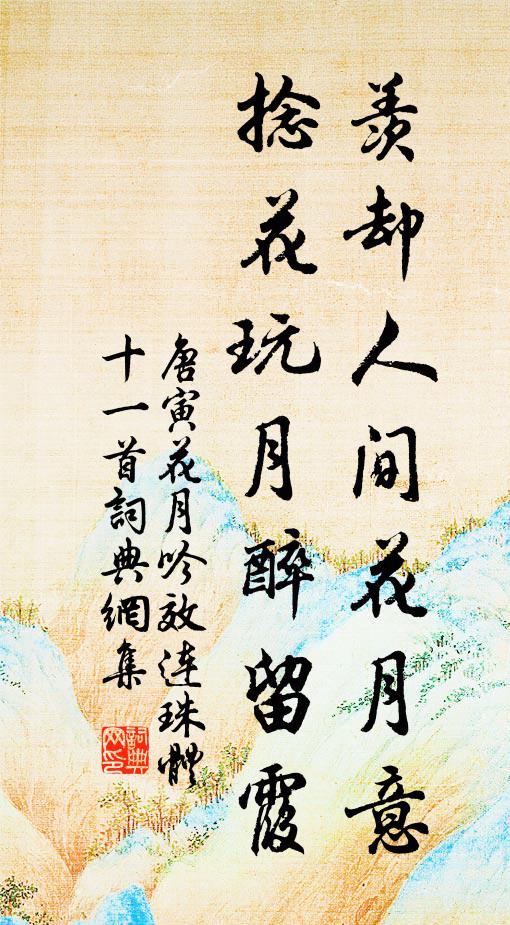 羨却人間花月意
捻花玩月醉留霞
唐寅花月吟效連珠體
十一首詞典網集
詞典
網印